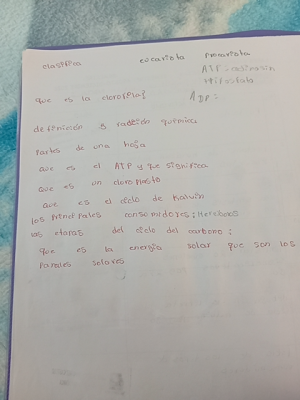 clasifica eucariota procariota
ATP:
ADP:
que es la clorofila?
definición reacción química
Partes de una hoja
que es el ATP y que significa
que es un cloroplasto
que es el ciclo de kalvin
los principales consomidores:
las etapas del ciclo del carbono:
que es la energia solar que son los
paneles solares